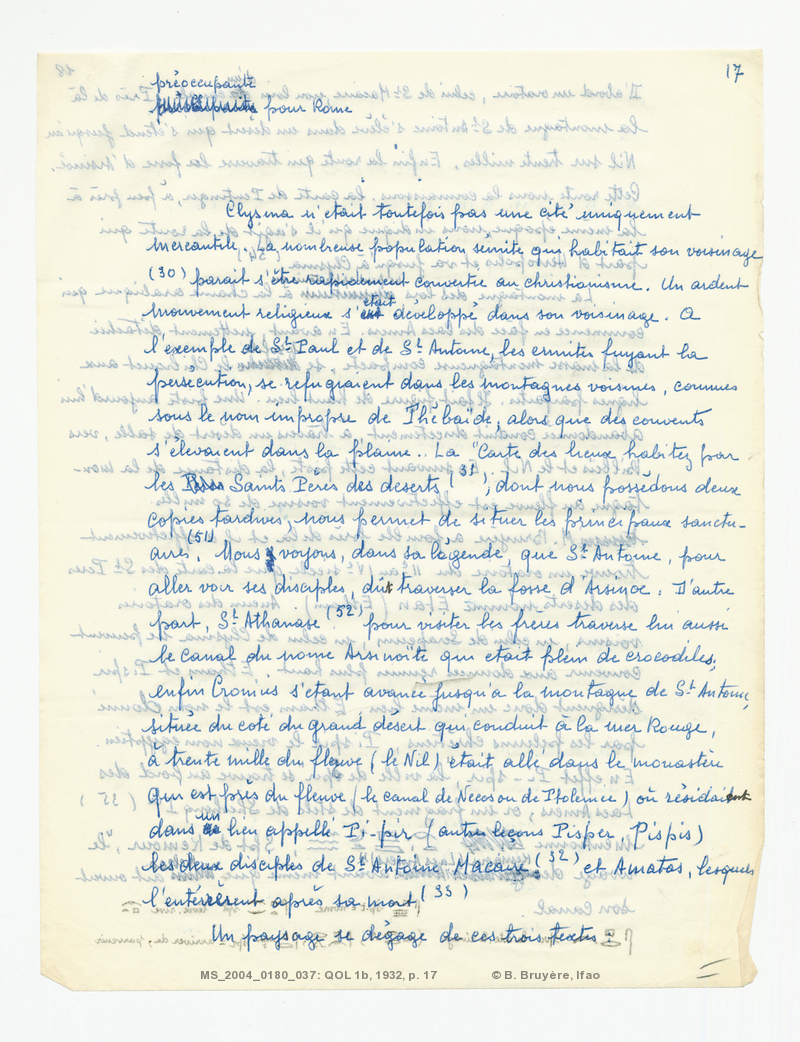 17
préoccupante
pour Rome
Clysma n'etait toutefois pas une cité uniquement
mercantile. La nombreuse population sémite qui habitait son voisinage
(30) parait s'être rapidement convertie au christianisme. Un ardent
mouvement religieux s'était développé dans son voisinage. A
l'exemple de St Paul et de St Antoine, les ermites fuyant la
persécution, se refugiaient dans les montagnes voisines, connues
sous le nom impropre de Thébaïde, alors que des couvents
s'élevaient dans la plaine.. La "Carte des lieux habitez par
les Saints Pères des deserts (31), dont nous possédons deux
copies tardives, nous permet de situer les principaux sanctu-
aires. (51) Nous voyons, dans sa légende, que St Antoine, pour
aller voir ses disciples, dût traverser la fosse d'Arsinoe. D'autre
part, St Athanase (52) pour visiter les freres traverse lui aussi
le canal du nome Arsinoïte qui etait plein de crocodiles;
enfin Cronius s'etant avancé jusqu'a la montagne de St Antoine,
située du coté du grand désert qui conduit à la mer Rouge,
à trente mille du fleuve (le Nil) était allé dans le monastère
qui est près du fleuve (le canal de Necos ou de Ptolemée) où résidaient
dans un lieu appellé Pi-pir (autres leçons Pisper, Pispis)
les deux disciples de St Antoine Macaire (32) et Amatas, lesquels
l'entérrèrent après sa mort (33)
Un paysage se dégage de ces trois textes :
MS_2004_0180_037: QOL 1b, 1932, p. 17 © B. Bruyère, Ifao